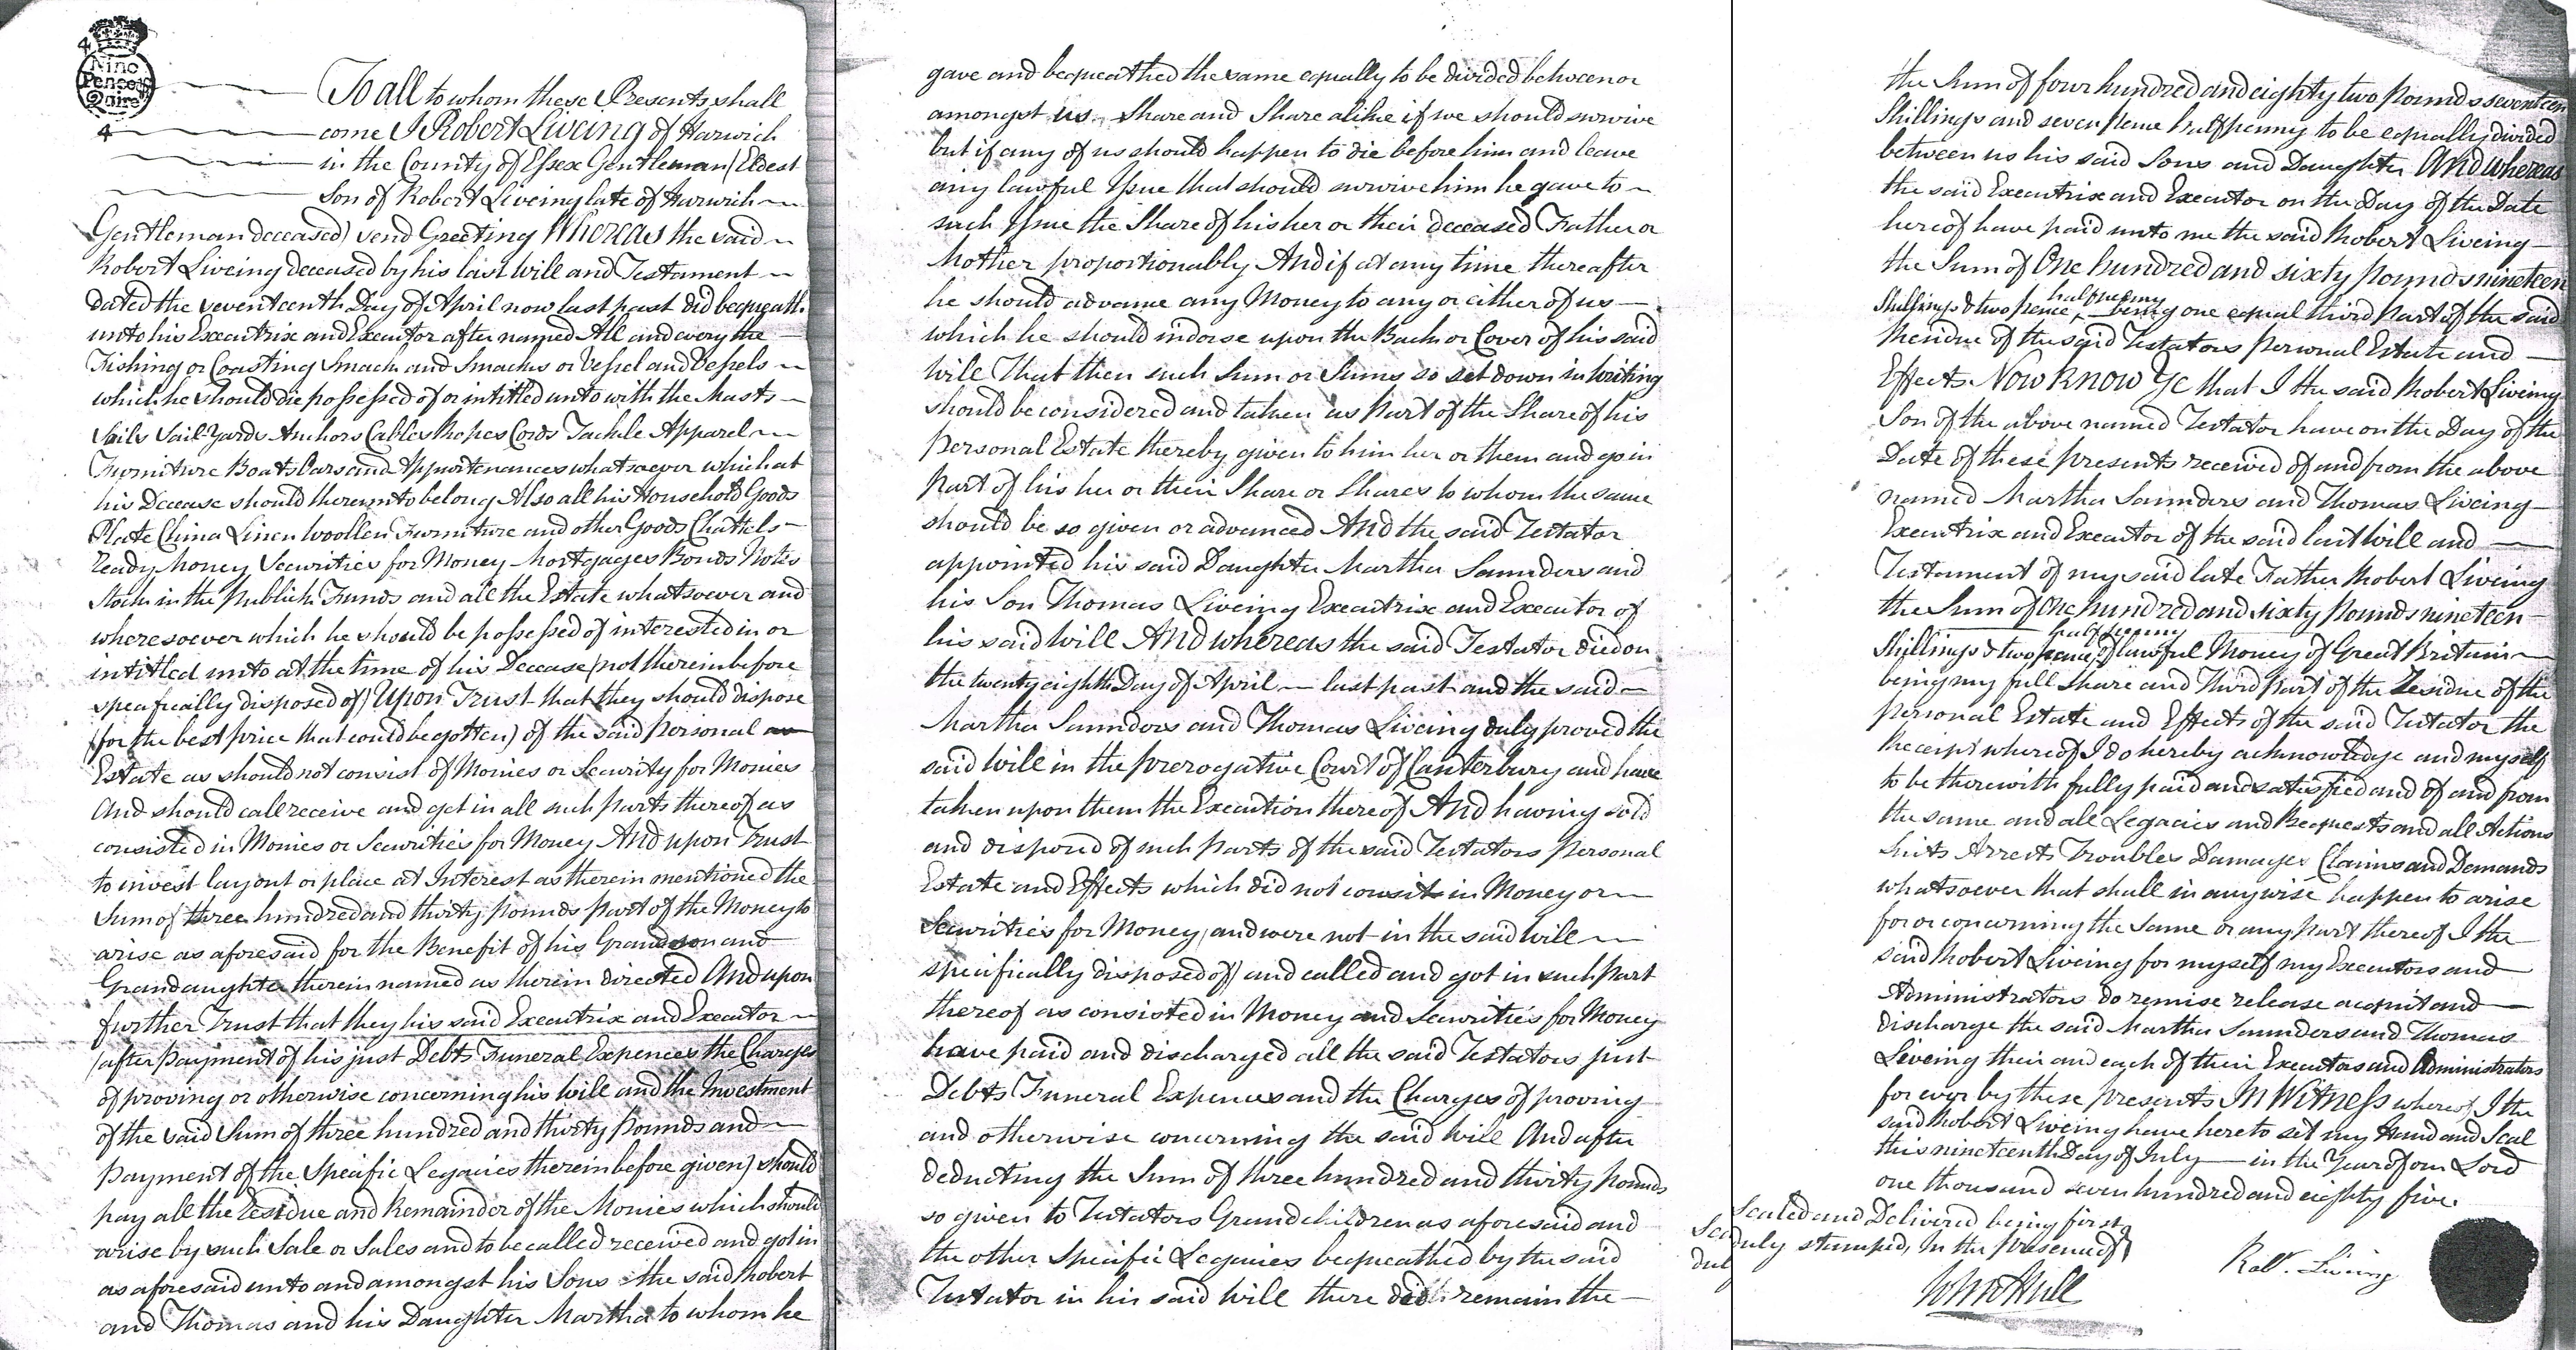 4
Nine
Pence
Quire
4
To all to whom these Presents shall
come I Robert Liveing of Harwich
in the County of Essex Gentleman (Eldest
Son of Robert Liveing late of Harwich
Gentleman deceased) send Greeting Whereas the said
Robert Liveing deceased by his last Will and Testament
dated the seventeenth Day of April now last past did bequeath
unto his Executrix and Executor after named All and every the
Fishing or Coasting Smack and Smacks or Vessel and Vessels
which he should die possessed of or intitled unto with the Masts
Sails Sail-Yards Anchors Cables Ropes Cords Tackle Apparel
Furniture Boats Oars and Appurtenances whatsoever which at
his Decease should thereunto belong Also all his Household Goods
Plate China Linen Woollen Furniture and other Goods Chattels
Ready Money Securities for Money Mortgages Bonds Notes
Stock in the Publick Funds and all the Estate whatsoever and
wheresoever which he should be possessed of interested in or
intitled unto at the time of his Decease (not therein before
specifically disposed of) Upon Trust that they should dispose
(for the best price that could be gotten) of the said Personal
Estate as should not consist of Monies or Security for Monies
And should call receive and get in all such parts thereof as
consisted in Monies or Securities for Money And upon Trust
to invest layout or place at Interest as therein mentioned the
Sum of three hundred and thirty pounds part of the Money to
arise as aforesaid for the Benefit of his Grandson and
Grandaughter therein named as therein directed And upon
further Trust that they his said Executrix and Executor
(after payment of his just Debts Funeral Expences the Charges
of proving or otherwise concerning his Will and the Investment
of the said Sum of three hundred and thirty Pounds and
payment of the Specific Legacies therein before given) should
pay all the Residue and Remainder of the Monies which should
arise by such Sale or Sales and to be called received and got in
as aforesaid unto and amongst his Sons the said Robert
and Thomas and his Daughter Martha to whom he
gave and bequeathed the same equally to be divided between or
amongst us Share and Share alike if we should survive
but if any of us should happen to die before him and leave
any lawful Issue that should survive him he gave to
such Issue the Share of his her or their deceased Father or
Mother proportionably And if at any time thereafter
he should advance any Money to any or either of us
which he should indorse upon the Back or Cover of his said
Will That then such Sum or Sums so set down in Writing
should be considered and taken as Part of the Share of his
Personal Estate thereby given to him her or them and go in
Part of his her or their Share or Shares to whom the same
should be so given or advanced And the said Testator
appointed his said Daughter Martha Saunders and
his Son Thomas Liveing Executrix and Executor of
his said Will And whereas the said Testator died on
the twenty eighth Day of April last past and the said
Martha Saunders and Thomas Liveing duly proved the
said Will in the Prerogative Court of Canterbury and have
taken upon them the Execution thereof And having sold
and disposed of such parts of the said Testators Personal
Estate and Effects which did not consist in Money or
Securities for Money (and were not in the said Will
specifically disposed of) and called and got in such Part
thereof as consisted in Money and Securities for Money
have paid and discharged all the said Testators just
Debts Funeral Expences and the Charges of proving
and otherwise concerning the said Will And after
deducting the Sum of three hundred and thirty pounds
so given to Testators Grandchildren as aforesaid and
the other Specific Legacies bequeathed by the said
Testator in his said Will there did remain the
Sea
dul
the Sum of four hundred and eighty two Pounds seventeen
Shillings and seven pence halfpenny to be equally divided
between us his said Sons and Daughter And whereas
the said Executrix and Executor on the Day of the Date
hereof have paid unto me the said Robert Liveing
the Sum of One hundred and sixty pounds nineteen
halfpenny
Shillings & two pence being one equal third Part of the said
Residue of the said Testators Personal Estate and
Effects Now Know Ye that I the said Robert Liveing
Son of the above named Testator have on the Day of the
Date of these presents received of and from the above
named Martha Saunders and Thomas Liveing
Executrix and Executor of the said last Will and
Testament of my said late Father Robert Liveing
the Sum of One hundred and sixty Pounds nineteen
halfpenny
Shillings & two pence of lawful Money of Great Britain
being my full Share and Third Part of the Residue of the
Personal Estate and Effects of the said Testator the
Receipt whereof I do hereby acknowledge and myself
to be therewith fully paid and satisfied and of and from
the same and all Legacies and Bequests and all Actions
Suits Arrests Troubles Damages Claims and Demands
whatsoever that shall in anywise happen to arise
for or concerning the same or any Part thereof I the
said Robert Liveing for myself my Executors and
Administrators do remise release acquit and
discharge the said Martha Saunders and Thomas
Liveing their and each of their Executors and Administrators
for ever by these presents In Witness whereof I the
said Robert Liveing have hereto set my Hand and Seal
this nineteenth Day of July in the Year of our Lord
one thousand seven hundred and eighty five.
Sealed and Delivered being first
duly stamped, in the presence of
Robt. Liveing